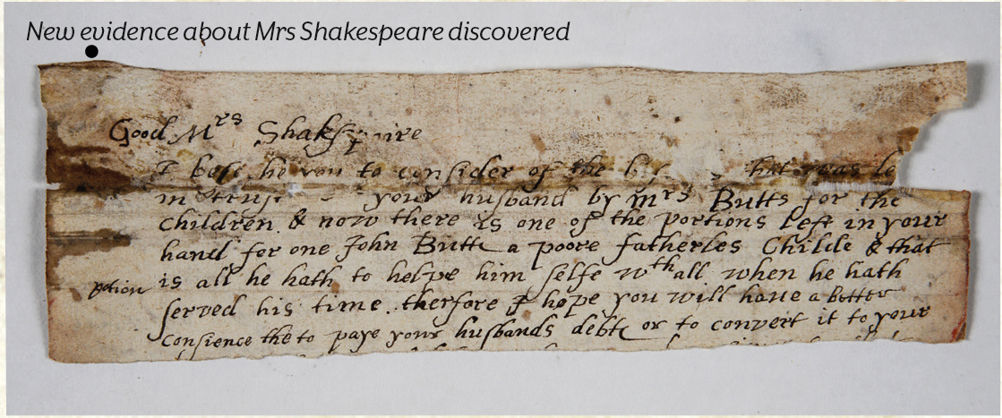 New evidence about Mrs Shakespeare discovered
Good Mrs Shakspaire
I you to consider of the that was le
in trust your husband by Mrs Butts for the
children & now there is one of the portions left in your
hand for one John Butts a poore fatherles Childe & that
petion is all he hath to helpe him selfe wthall when he hath
served his time therfore I hope you will have a better
consience the to paye your husbands debts or to convert it to your